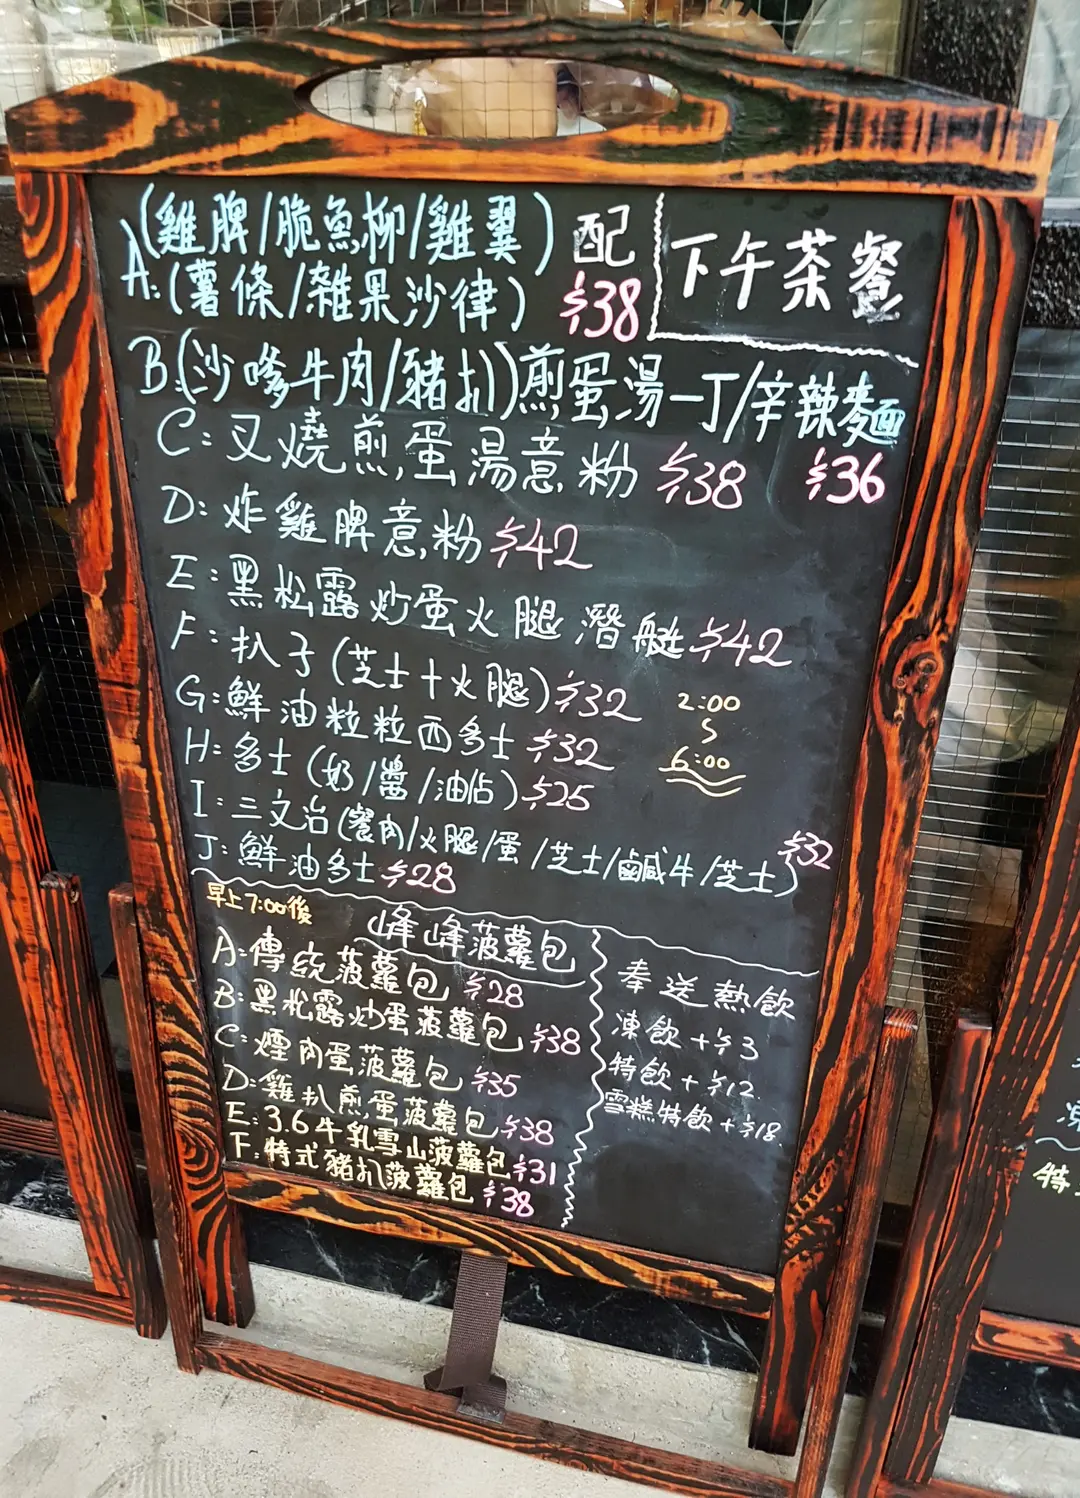 下午茶餐
A:(雞脾/脆魚柳/雞翼)配
(薯條/雜果沙律) $38
B:(沙嗲牛肉/豬扒)煎蛋湯一丁/辛辣麵 $36
C:叉燒煎蛋湯意粉 $38
D:炸雞脾意粉 $42
E:黑松露炒蛋火腿潛艇 $42
F:扒子(芝士+火腿) $32
G:鮮油粒粒西多士 $32
H:多士(奶/醬/油佔) $25
I:三文治(餐肉/火腿/蛋/芝士/鹹牛/芝士) $32
J:鮮油多士 $28
2:00
~
6:00
早上7:00後
峰峰菠蘿包
A:傳統菠蘿包 $28
B:黑松露炒蛋菠蘿包 $38
C:煙肉蛋菠蘿包 $35
D:雞扒煎蛋菠蘿包 $38
E:3.6牛乳雪山菠蘿包 $31
F:特式豬扒菠蘿包 $38
奉送熱飲
凍飲+$3
特飲+$12
雪糕特飲+$18
特